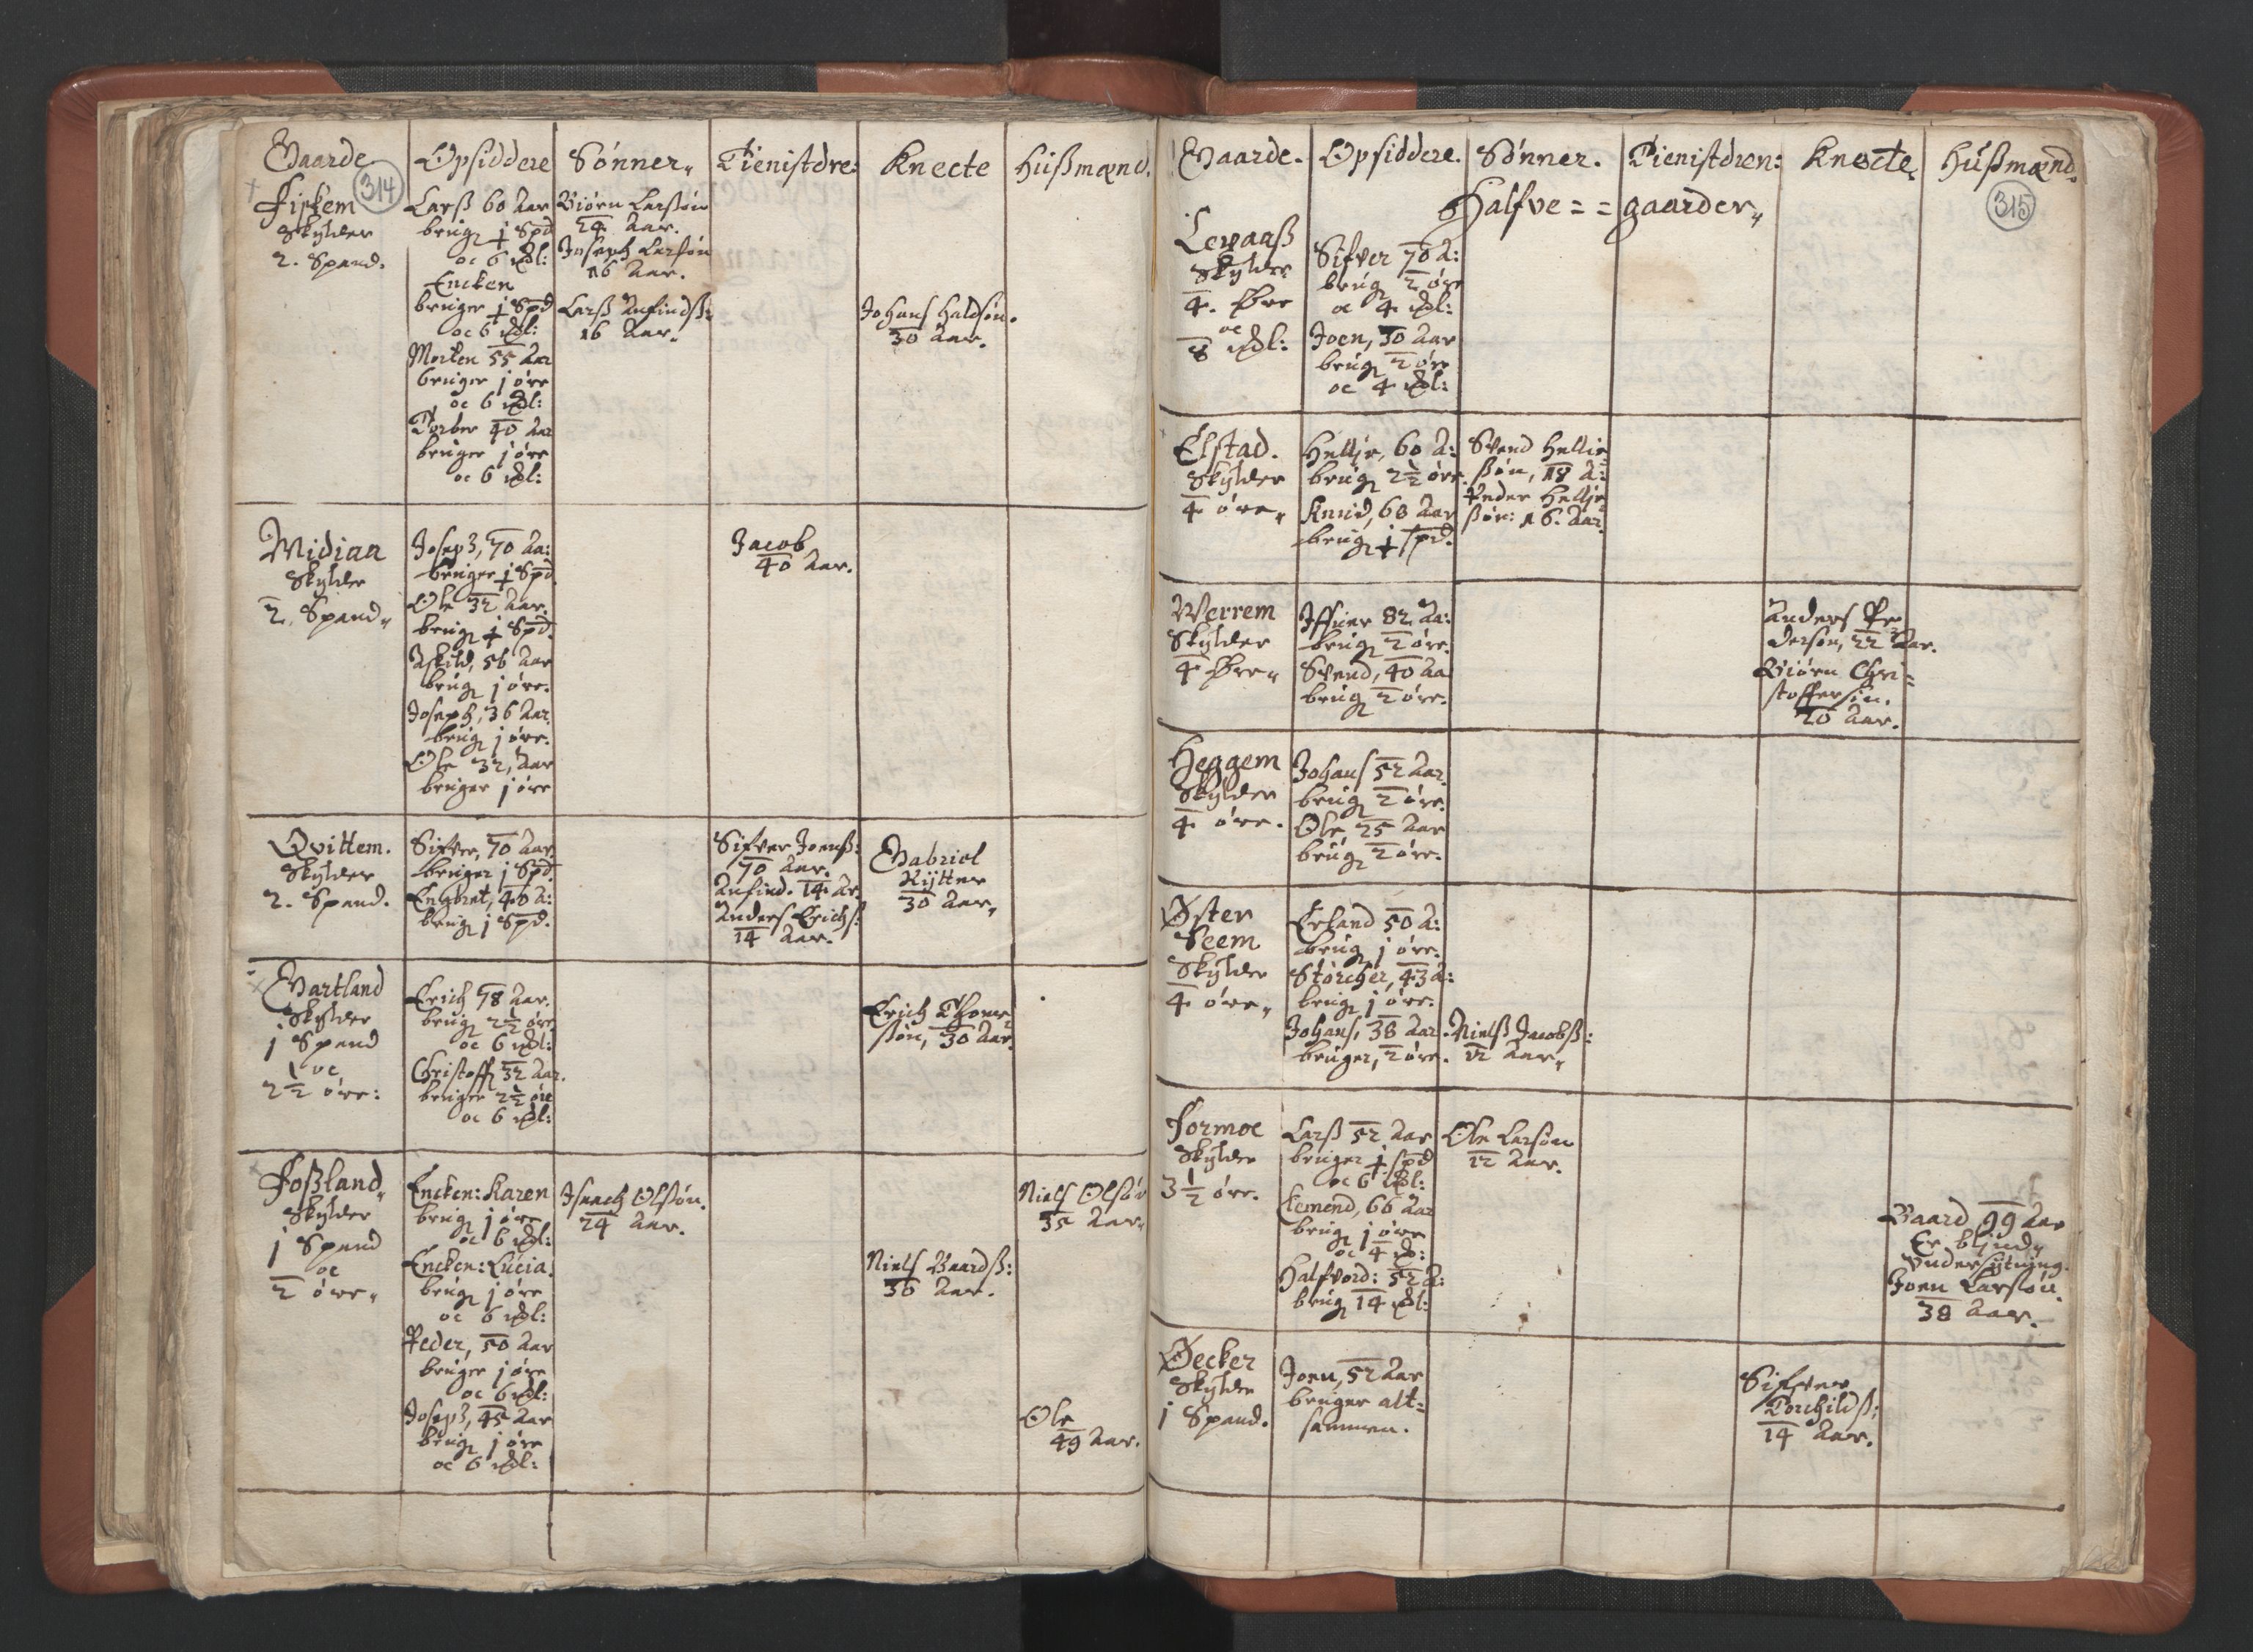 Gaarde
314
Opsiddere
Sønner
Tienistdre:
Knecte
Hüßmænd.
Fiskem
Skylder
2. Spand.
Larß 60 Aar
brug ½ Spd
oc 6 mdl:
Encken
bruger ½ Spd
oc 6 mdl:
Morten 55 Aar
bruger j øre
oc 6 mdl:
Torber 40 Aar
bruger j øre
oc 6 mdl:
Biørn Larßøn
24 Aar.
Joseph Larsøn
16 Aar.
Larß Anfindß:
16 Aar.
Johans Haldsøn.
30 Aar.
Midiaa
Skylder
2. Spand
Joseph, 70 Aa:
bruger ½ Spd
Ole 32 Aar.
brug ½ Spd.
Askild, 56 Aar
brug j øre.
Joseph, 36 Aar.
brug j øre.
Ole 32, Aar
bruger j øre
Jacob
40 Aar.
Qvittem.
Skylder
2. Spand.
Sifver, 70 Aar.
bruger j Spd.
Engbret, 40 A:
brug j Spd.
Sifver Joenß:
70 Aar.
Anfind. 14 Ar
Anders Erichs:
14 Aar.
Gabriel
Rytter
30 Aar
Gartland
Skylder
j Spand
oc
2½ øre:
Erich 78 Aar.
brug 2½ øre
oc 6 mdl:
Christoff 32 Aar.
bruger 2½ øre
oc 6 mdl:
Erich Thome
ßøn, 30 Aar.
Foßland
Skylder
j Spand
oc
2 øre
Encken: Karen
brug j øre
oc 6 mdl:
Encken: Lucia.
brug j øre
oc 6 mdl:
Peder, 50 Aar
bruger j øre
oc 6 mdl:
Joseph, 45 Aar
brug j øre
oc 6 mdl:
Isaach Olsøn.
24 Aar.
Niels Baardß:
36 Aar.
Niels Olsøn
35 Aar
Ole
49 Aar.
Gaarde.
Opsiddere.
Sønner.
Tienistdren:
Knecte
Hüßmænd
315
Halfve = = gaarder
Levaaß
Skylder
4. Øre
oc
8 mdl:
Sifver 70 A:
brug 2 øre
oc 4 mdl:
Joen, 30 Aar
brug 2 øre
oc 4 mdl:
Elstad.
Skylder
4 øre
Hellje, 60 A:
brug 2½ øre.
Knud, 60 Aar
brug ½ spd.
Svend Hellie
ßøn, 18 A:
Peder Hellje
ßøn: 16. Aar.
Werrem
Skylder
4 Øre
Iffuer 82 Aa:
brug 2 øre.
Svend, 40 Aa
brug 2 øre.
Anders Pe
dersøn, 22 Aar.
Biørn Chri=
stoffersøn.
20 Aar.
Heggem
Skylder
4 øre.
Johans 52 Aar.
brug 2 øre.
Ole 25 Aar
brug 2 øre.
Øster
Seem
Skylder
4 øre
Erland 50 A:
brug j øre.
Storcher, 43 A:
brug j øre.
Johans, 38 Aar.
bruger, 2 øre.
Nielß Jacobß:
12 Aar
Formoe
Skylder
3½ øre.
Larß 52 Aar
bruger ½ spd
oc 6 mdl:
Elemend, 66 Aar
brug j øre
oc 4 md:
Halfvord: 52 A:
brug 14 mdl:
Ole Larsøn
12 Aar.
Baard 99 Aar
Er blind
Undersytning.
Joen Larssøn.
38 Aar.
Øecker
Skylder
j Spand.
Joen, 52 Aar
bruger alt=
sammen.
Sifver
Torchildß:
14 Aar.